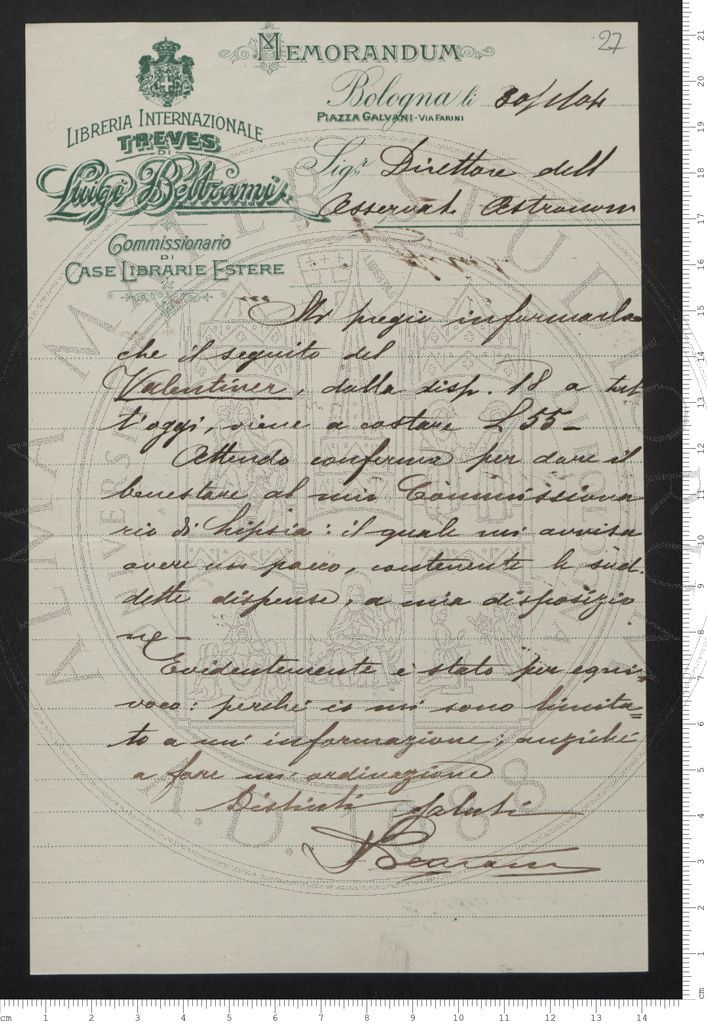 27
MEMORANDUM
Bologna li 30/1/04
PIAZZA GALVANI - VIA FARINI
LIBRERIA INTERNAZIONALE
TREVES
DI
Luigi Beltrami
Commissionario
DI
CASE LIBRARIE ESTERE
Sigr. Direttore dell
Osservat. Astronom
Mi pregio informarla
che il seguito del
Valentiner, dalla disp. 18 a tut
t'oggi, viene a costare L 55 -
Attendo conferma per dare il
benestare al mio Commissiona
rio di Lipsia: il quale mi avvisa
avere un pacco, contenente le sud.
dette dispense, a mia disposizio
ne -
Evidentemente è stato per equi-
voco: perchè io mi sono limita=
to a un' informazione; anzichè
a fare un' ordinazione
Distinti saluti
ALMA MATER STUDIORUM
UNIVERSITÀ
A.D. 1088